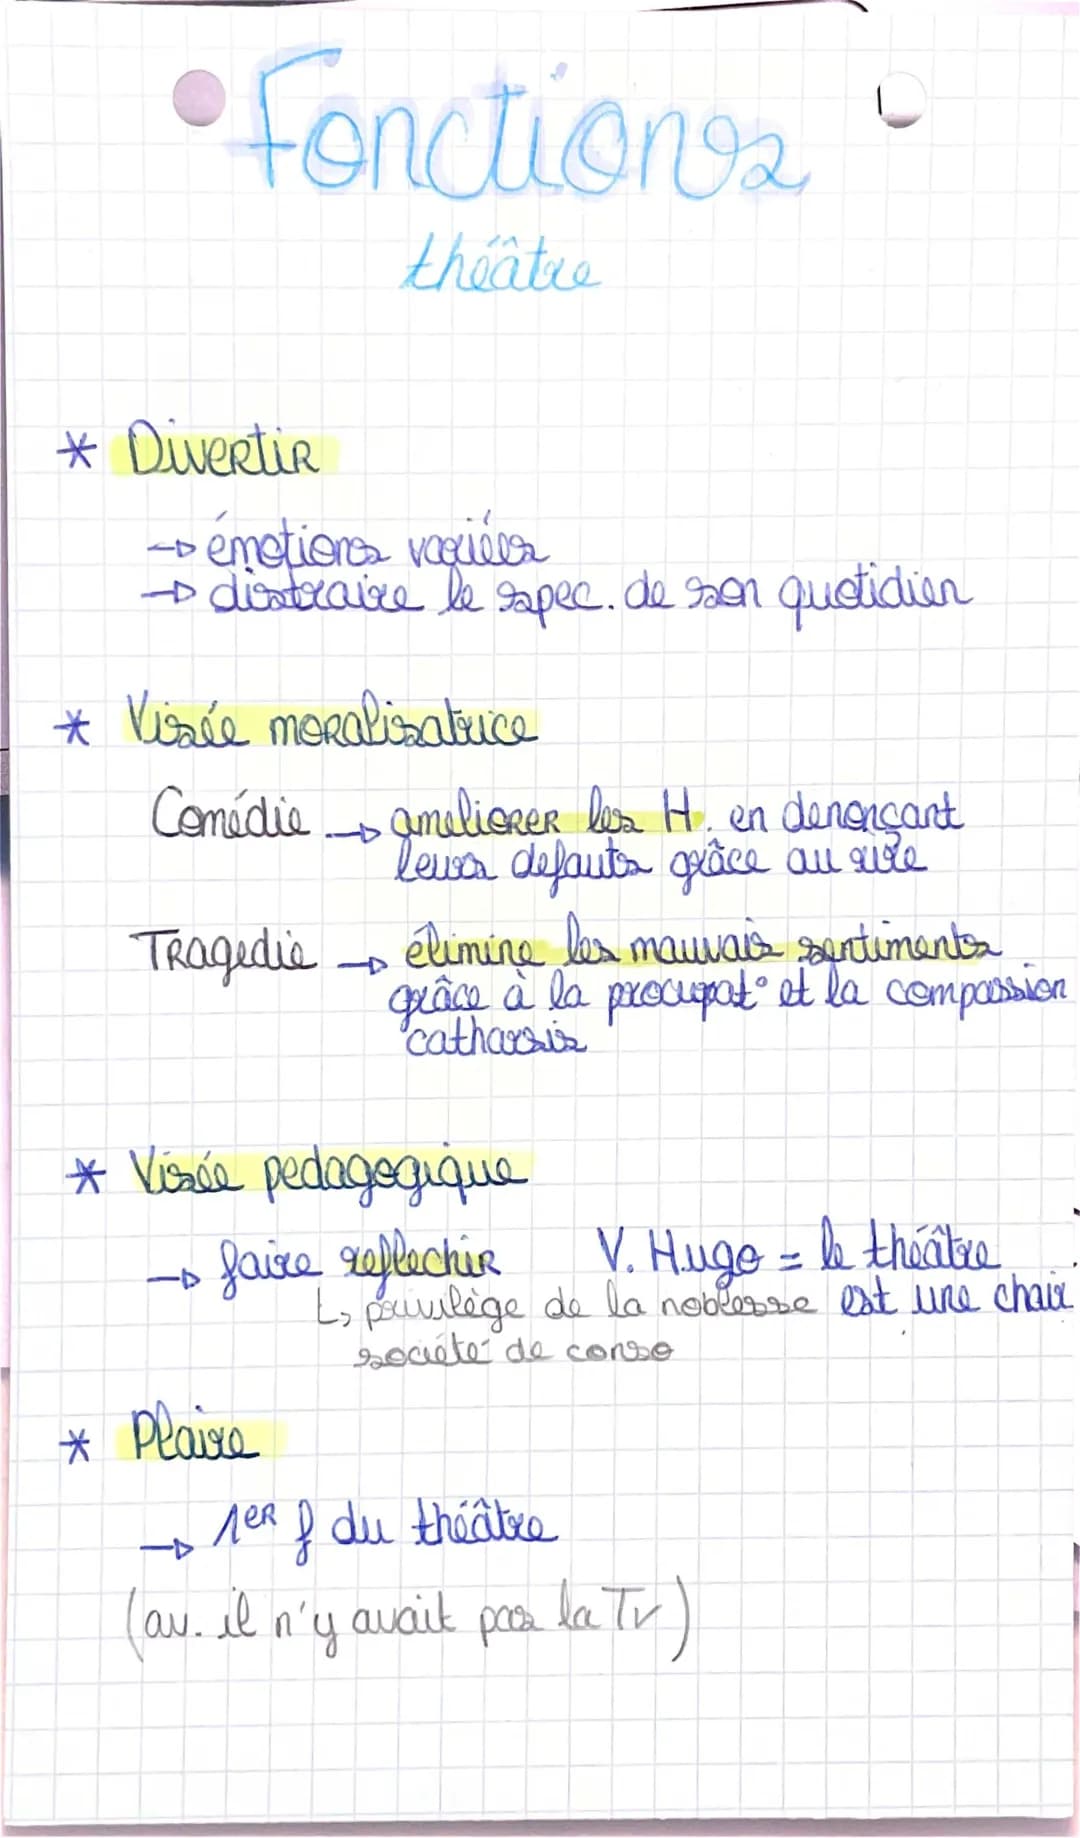 Fonctions
théâtre
* Divertir
→ émotions variées
→ distraire le spec. de son quotidien
* Visée moralisatrice
Comédie → ameliorer les H. en denonçant
leurs defauts grâce au rire
Tragedie → élimine les mauvais sentiments
grâce à la procupat° et la compassion
catharsis
* Visée pedagogique
→ faire reflechir V. Hugo = le théâtre
↳ privilège de la noblesse est une chair
société de conso
* Plaire
→ 1er f du théâtre
(av. il n'y avait pas la Tv)